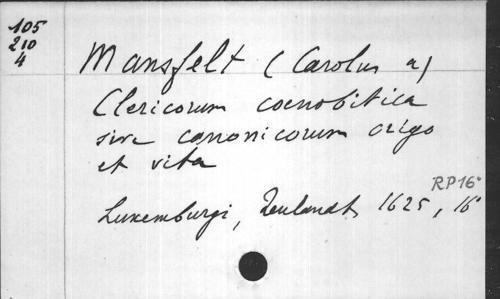 105
210
4
Mansfelt (Carolus a)
Clericorum coenobitica
sive canonicorum origo
et vita
RP16°
Luxemburgi, Reulandt, 1625, 16°